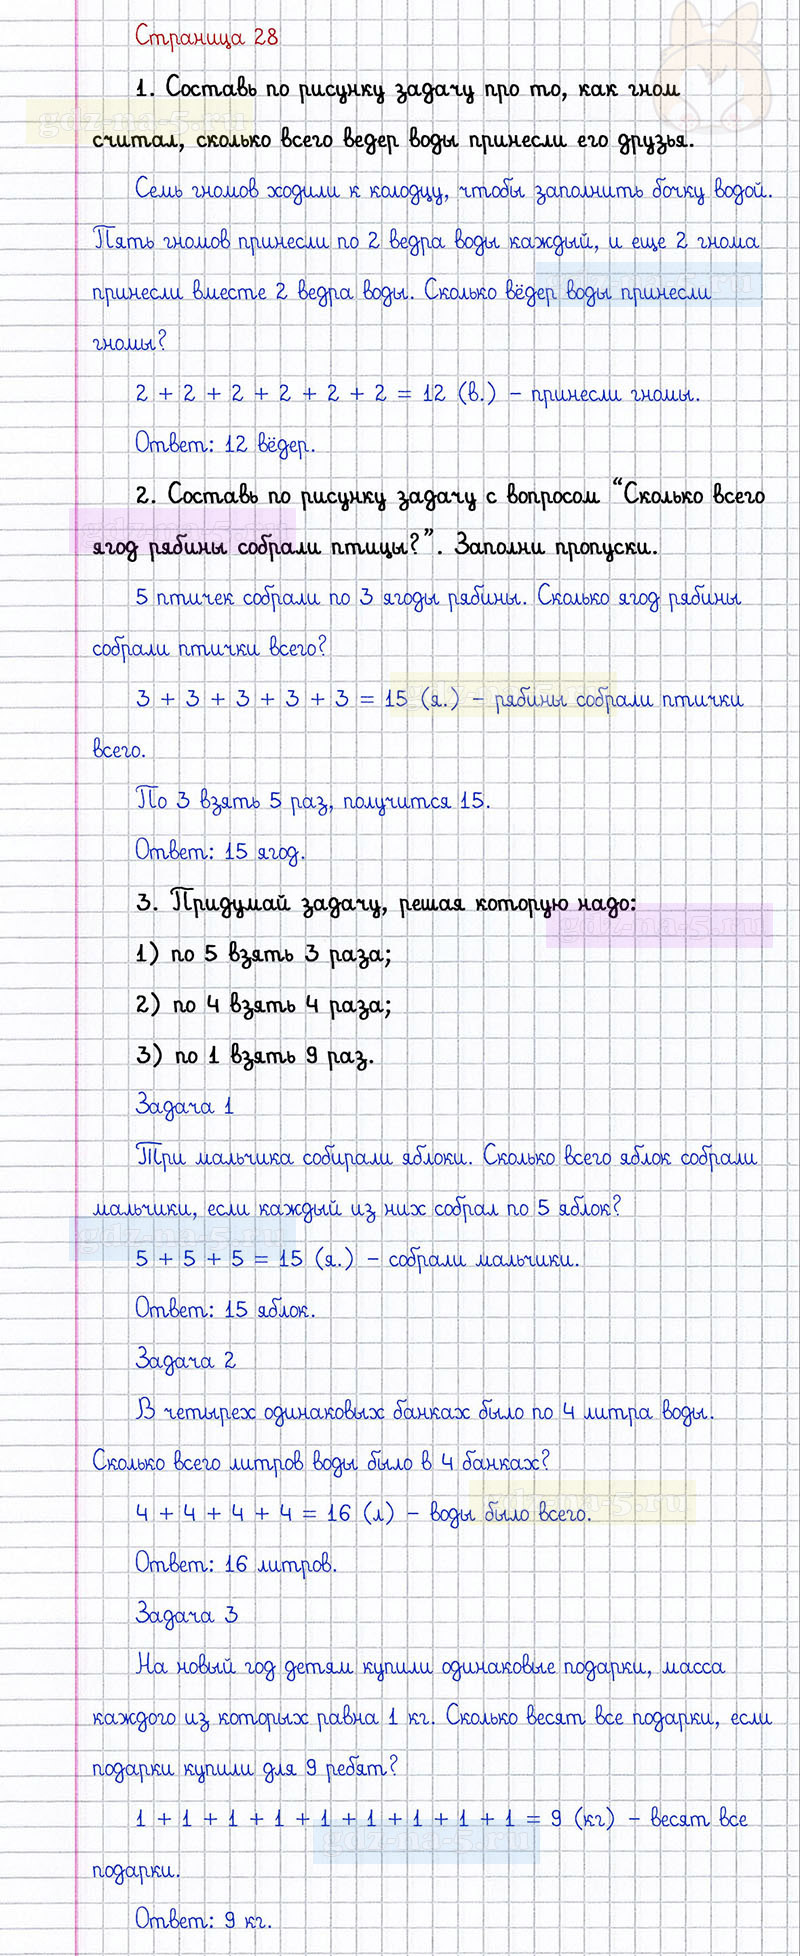 Страница 28
1. Составь по рисунку задачу про то, как гном
gdz-na-5.ru
считал, сколько всего ведер воды принесли его друзья.
Семь гномов ходили к колодцу, чтобы заполнить бочку водой.
Пять гномов принесли по 2 ведра воды каждый, и еще 2 гнома
gdz-na-5.ru
принесли вместе 2 ведра воды. Сколько вёдер воды принесли
гномы?
2 + 2 + 2 + 2 + 2 + 2 = 12 (в.) – принесли гномы.
Ответ: 12 вёдер.
2. Составь по рисунку задачу с вопросом “Сколько всего
gdz-na-5.ru
ягод рябины собрали птицы?”. Заполни пропуски.
5 птичек собрали по 3 ягоды рябины. Сколько ягод рябины
собрали птички всего?
gdz-na-5.ru
3 + 3 + 3 + 3 + 3 = 15 (я.) – рябины собрали птички
всего.
По 3 взять 5 раз, получится 15.
Ответ: 15 ягод.
3. Придумай задачу, решая которую надо:
gdz-na-5.ru
1) по 5 взять 3 раза;
2) по 4 взять 4 раза;
3) по 1 взять 9 раз.
Задача 1
Три мальчика собирали яблоки. Сколько всего яблок собрали
мальчики, если каждый из них собрал по 5 яблок?
gdz-na-5.ru
5 + 5 + 5 = 15 (я.) – собрали мальчики.
Ответ: 15 яблок.
Задача 2
В четырех одинаковых банках было по 4 литра воды.
Сколько всего литров воды было в 4 банках?
gdz-na-5.ru
4 + 4 + 4 + 4 = 16 (л) – воды было всего.
Ответ: 16 литров.
Задача 3
На новый год детям купили одинаковые подарки, масса
каждого из которых равна 1 кг. Сколько весят все подарки, если
подарки купили для 9 ребят?
1 + 1 + 1 + 1 + 1 + 1 + 1 + 1 + 1 = 9 (кг) – весят все
gdz-na-5.ru
подарки.
Ответ: 9 кг.